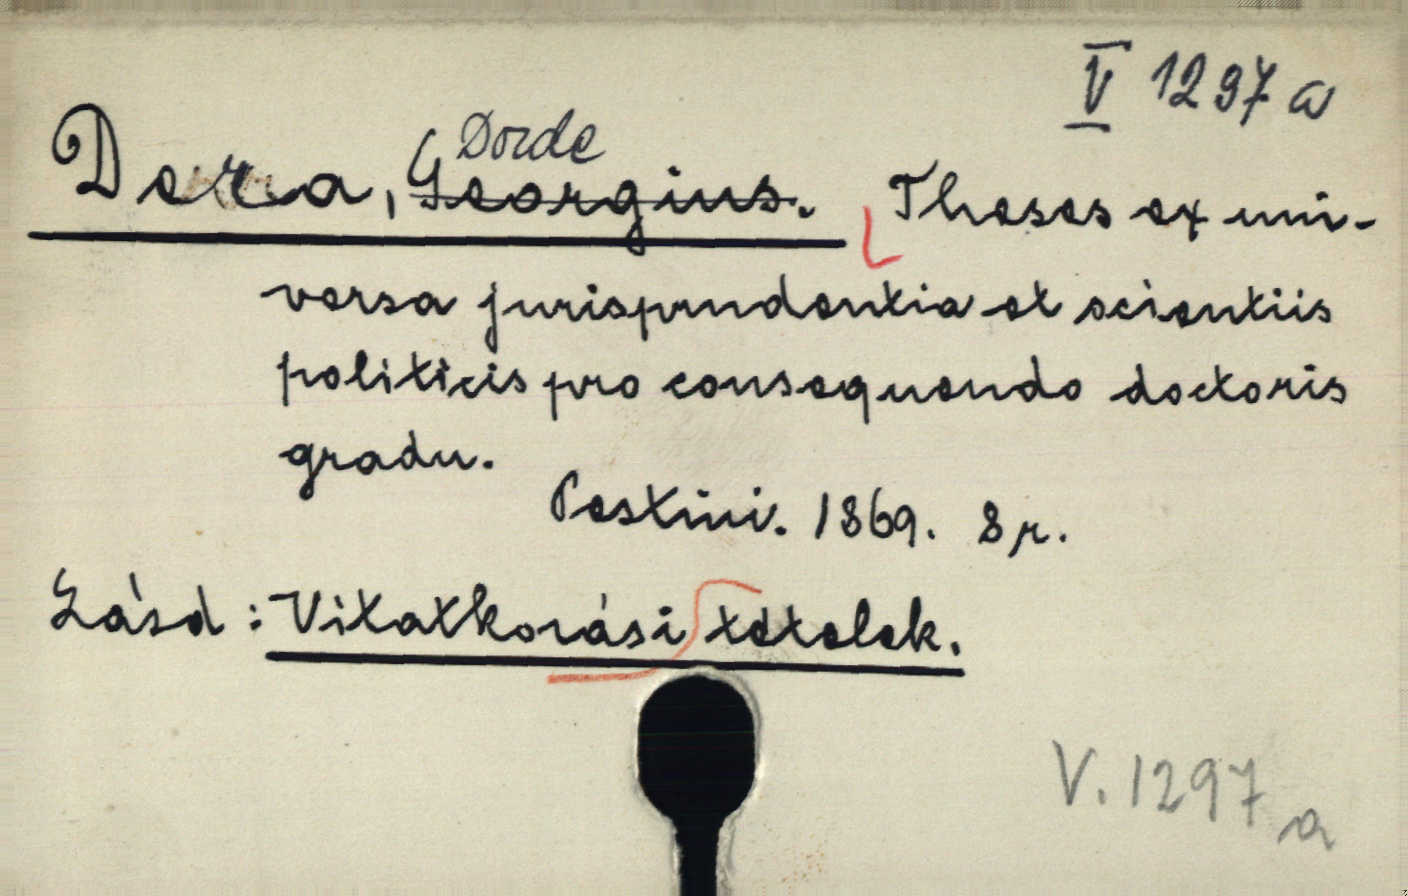 V 1297 a
Dorde
Dera, Georgius. Theses ex uni-
versa jurisprudentia et scientiis
politicis pro consequendo doctoris
gradu.
Pestini. 1869. 8 r.
Lásd: Vitatkozási tételek.
V. 1297 a